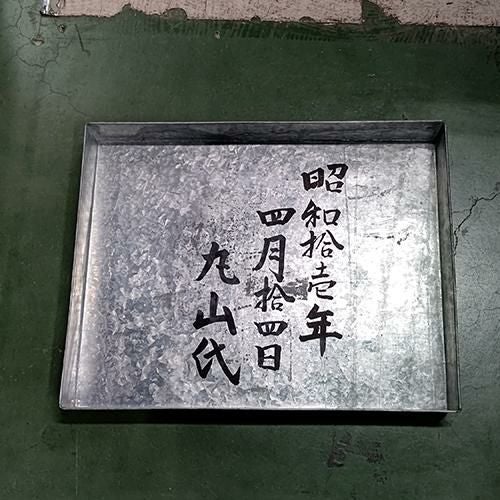 昭和拾壱年
四月拾四日
丸山代